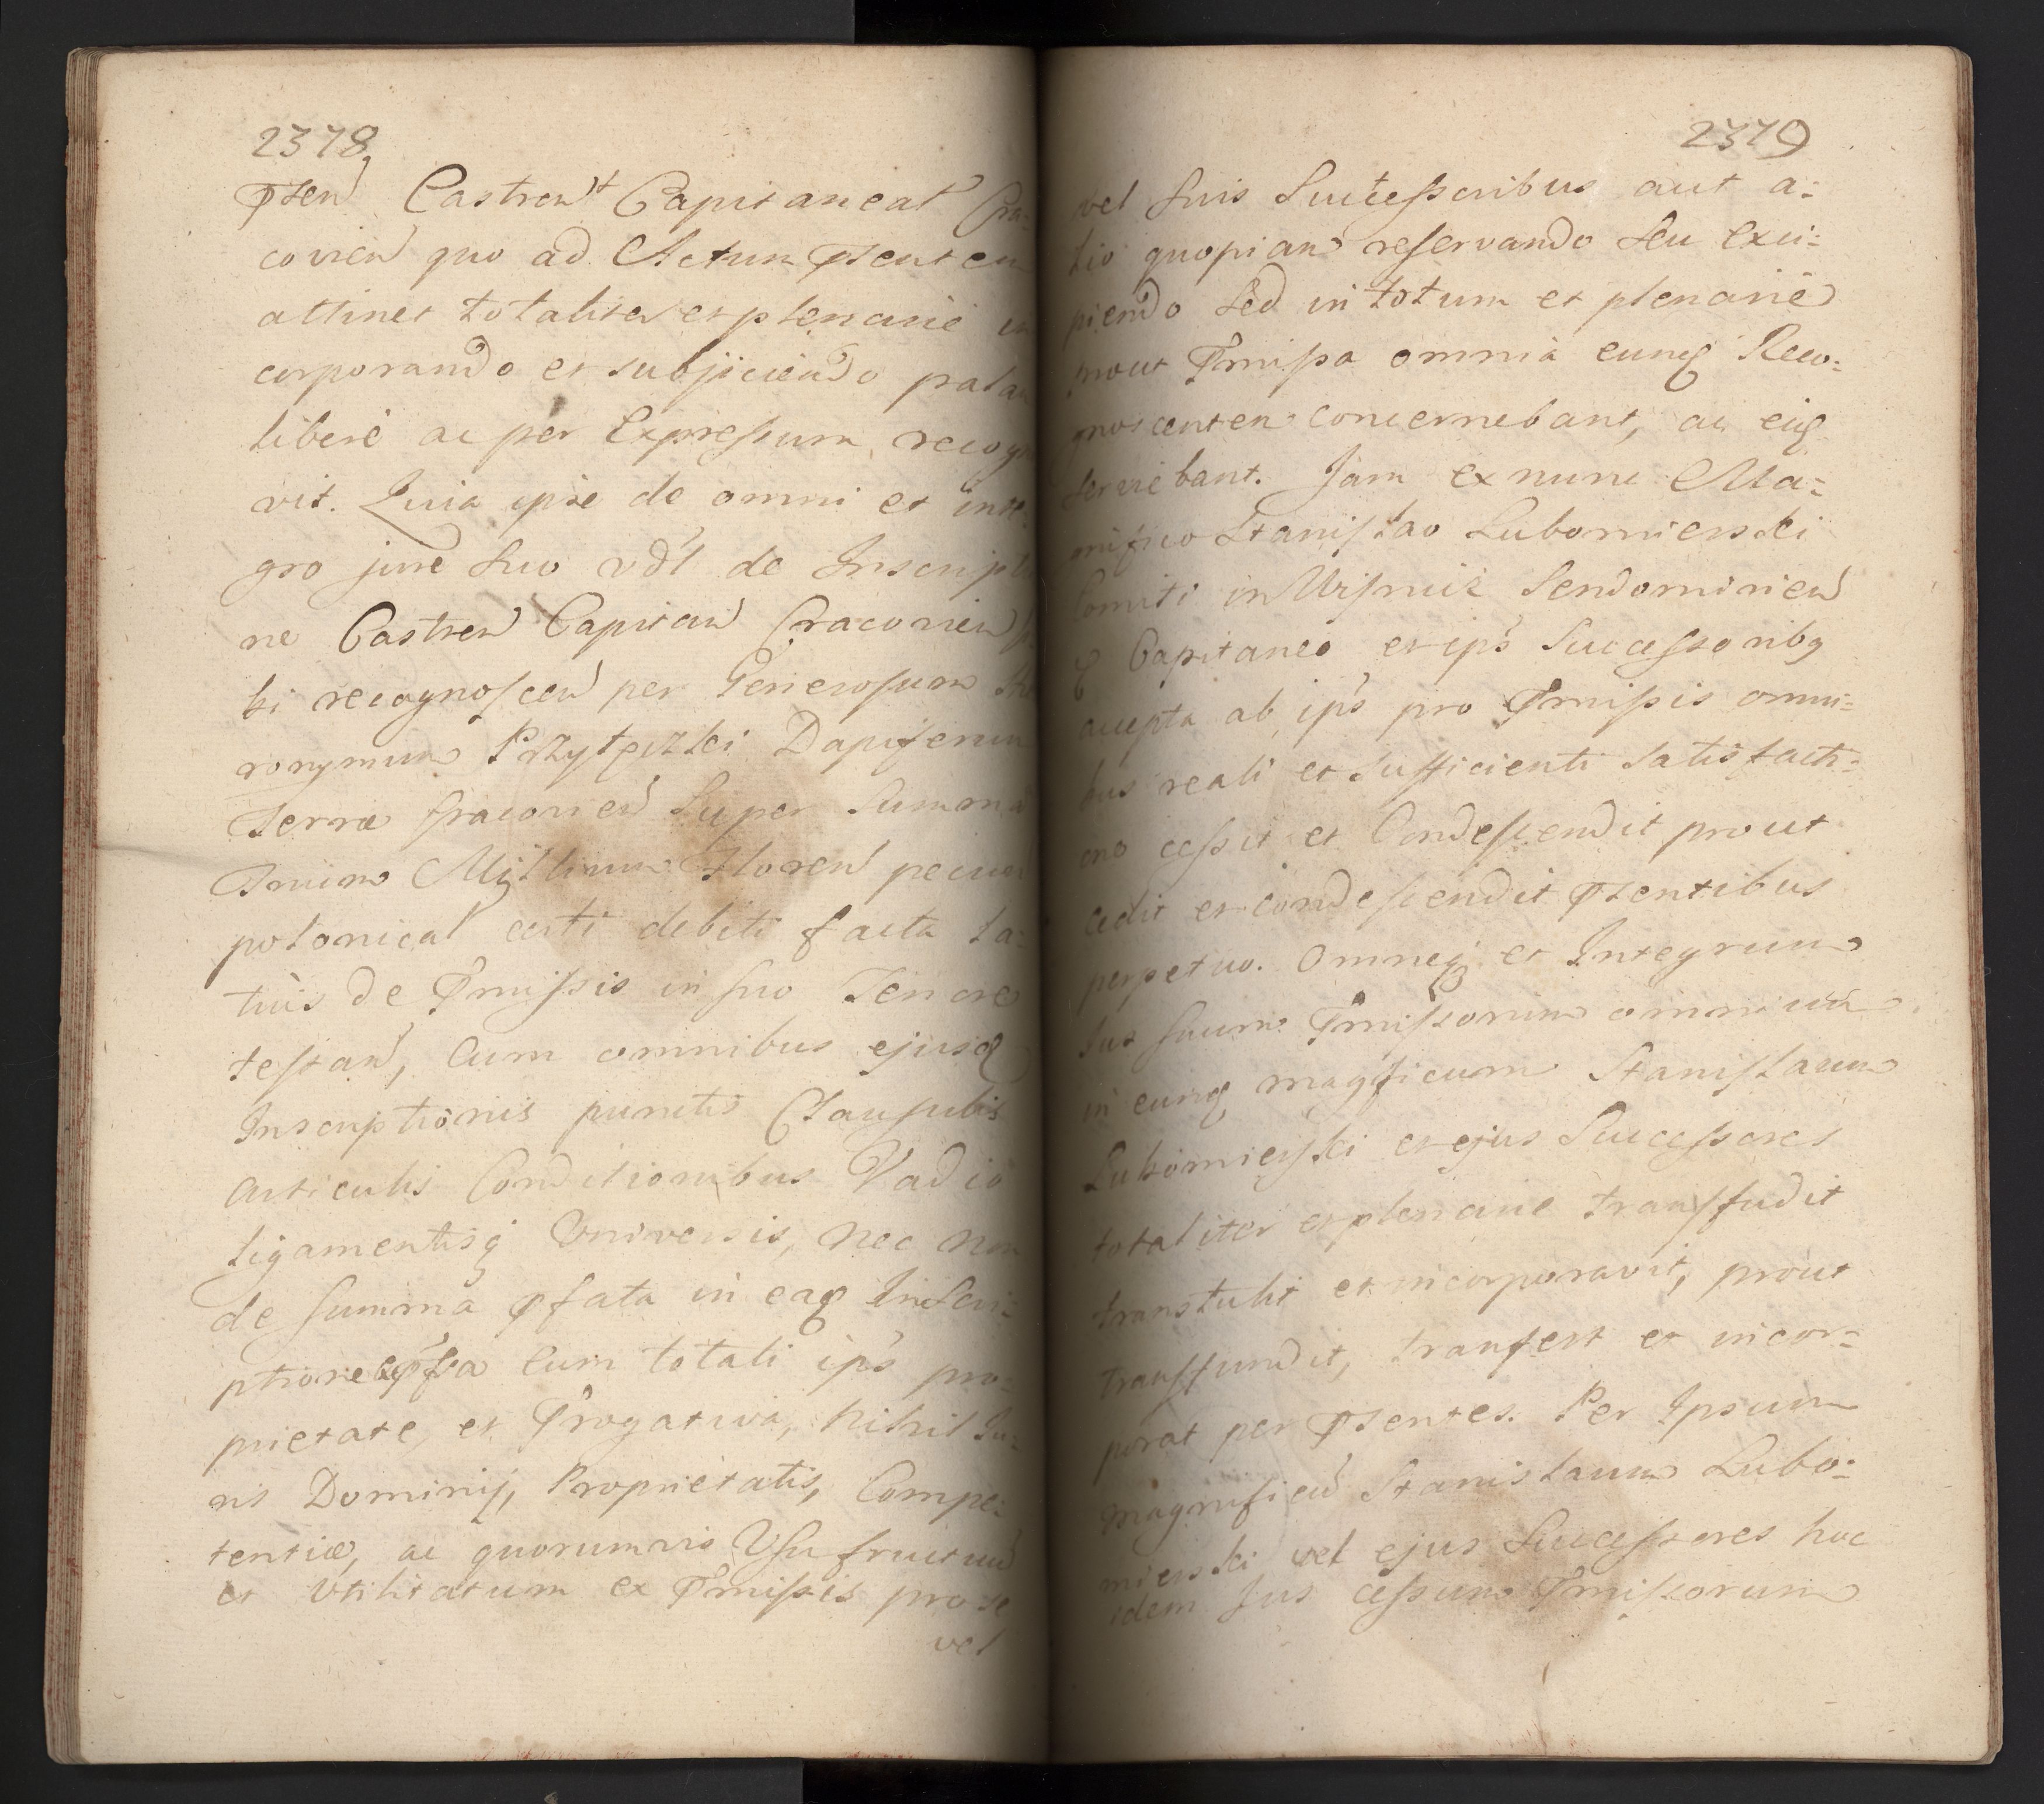 2378
Pstend Castren Capitaneat Cra-
covien quo ad Actum Psentem
attinet totaliter et plenarie in
corporando et subjiciendo palam
libere ac per Expressum recogno
vit. Quia ipse de omni et inte
gro jure Suo vdl de Inscriptio
ne Castren Capitan Cracovien si
bi recognoscen per Generosum Hie
ronymum Przyłęcki Dapiferum
Terræ Cracovien Super Summa
Trium Millium Floren pecun
polonical certi debiti facta la-
tius de Pmissis in suo Tenore
testan, Cum omnibus ejusd
Inscriptionis punctis Clausulis
Articulis Conditionibus Vadio
ligamentisq Universis, nec non
de summa pfata in eaq Inscri-
ptione expssa Cum totali ips pro-
prietate, et Progativa, Nihil Ju-
ris Dominij, Proprietatis, Compe-
tentiæ, ac quorumvis Usu fructuum
et Utilitatum ex Pmissis pro se
vel
2379
vel suis Successoribus aut a-
lio quopiam reservando seu exci-
piendo Sed in totum et plenarie
prout Pmissa omnia eunq Reco-
gnoscentem concernebant, ac eiq
serviebant. Jam ex nunc Ma-
nifico Stanislao Lubomierski
Comiti in Wisnicz Sendomirien
& Capitaneo et ips Successoribq
accepta ab ips pro Pmissis omni-
bus reali et sufficienti satisfacti-
one cessit et Condescendit prout
cedit et condescendit Psentibus
perpetuo. Omneq et Integrum
Jus suum Pmissorum omnium
in eunq magificum Stanislaum
Lubomierski et ejus Successores
totaliter et plenarie transfudit
transtulit et incorporavit, prout
transfundit, transfert et incor-
porat per Psentes. Per Ipsum
magnificum Stanislaum Lubo-
mierski vel ejus Successores hoc
idem Jus cessum Pmissorum